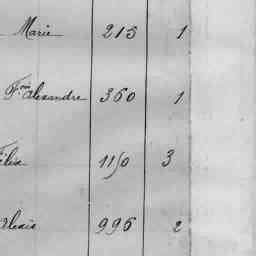 Marie 215 1
Fois Alexandre 360 1
Félix 1150 3
Alexis 996 2